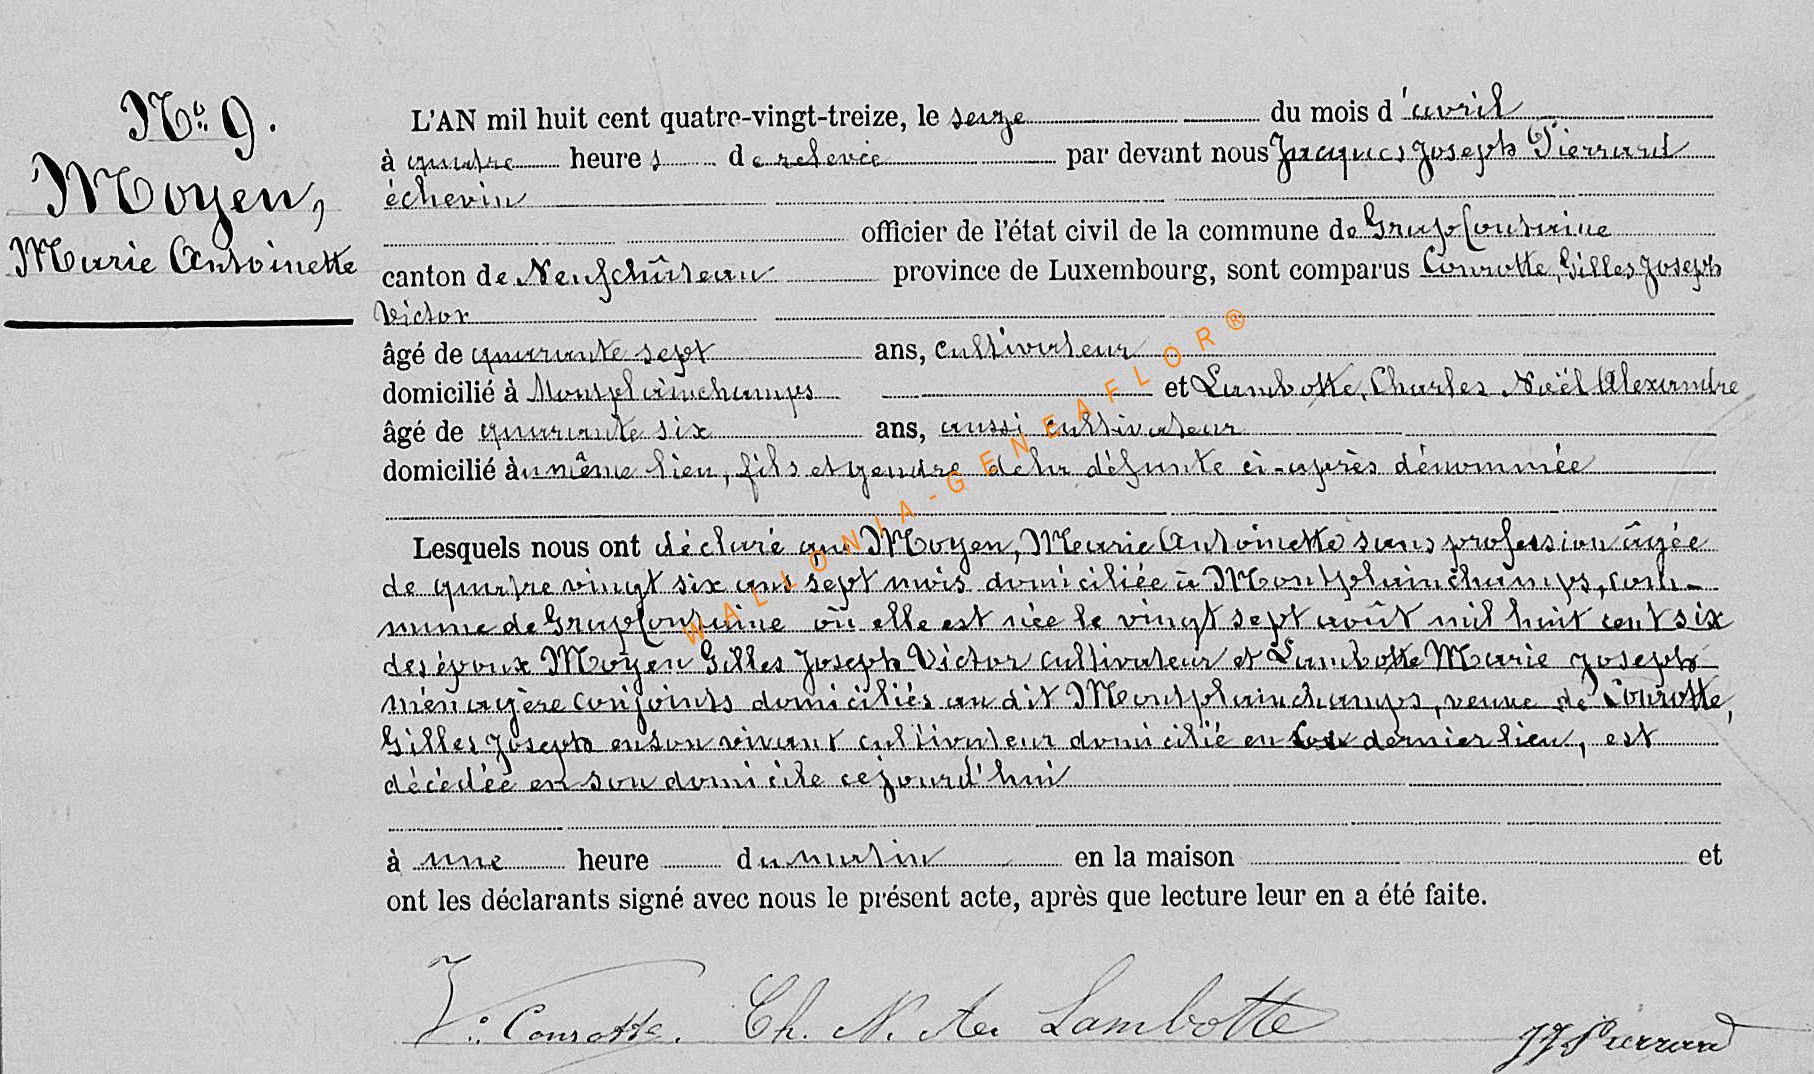 N° 9.
Moyen,
Marie Antoinette
L'AN mil huit cent quatre-vingt-treize, le seize du mois d'avril
à quatre heures de relevée par devant nous Jacques Joseph Pierrard
échevin
officier de l'état civil de la commune de Grapfontaine
canton de Neufchâteau province de Luxembourg, sont comparus Courotte, Gilles Joseph
Victor
âgé de quarante sept ans, cultivateur
domicilié à Montplainchamps et Lambotte, Charles Noël Alexandre
âgé de quarante six ans, aussi cultivateur
domicilié au même lieu, fils et gendre de la défunte ci-après dénommée
Lesquels nous ont déclaré que Moyen, Marie Antoinette sans profession âgée
de quatre vingt six ans sept mois domiciliée à Montplainchamps, com-
mune de Grapfontaine où elle est née le vingt sept août mil huit cent six
des époux Moyen Gilles Joseph Victor cultivateur et Lambotte Marie Joseph
ménagère conjoints domiciliés au dit Montplainchamps, veuve de Courotte,
Gilles Joseph en son vivant cultivateur domicilié en dernier lieu, est
décédée en son domicile cejourd'hui
à une heure du matin en la maison et
ont les déclarants signé avec nous le présent acte, après que lecture leur en a été faite.
V: Courotte. Ch. N. Aex Lambotte JJ Pierrard
WALLONIA-GENEAFLOR®